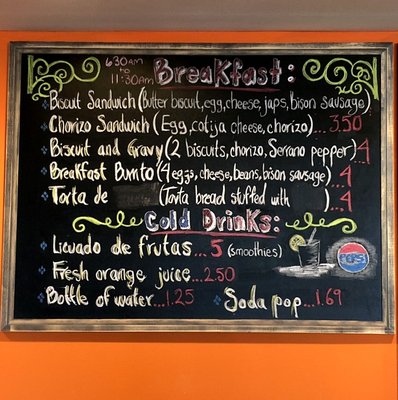 6:30AM
to
11:30AM
Breakfast:
Biscuit Sandwich (Butter biscuit, egg, cheese, japs, bison sausage)
Chorizo Sandwich (Egg, cotija cheese, chorizo)...3.50
Biscuit and Gravy (2 biscuits, chorizo, Serrano pepper)...4
Breakfast Burrito (4 eggs, cheese, beans, bison sausage)...4
Torta de (Torta bread stuffed with )...4
Cold Drinks:
Licuado de frutas...5 (smoothies)
Fresh orange juice...2.50
Bottle of water...1.25 Soda pop...1.69